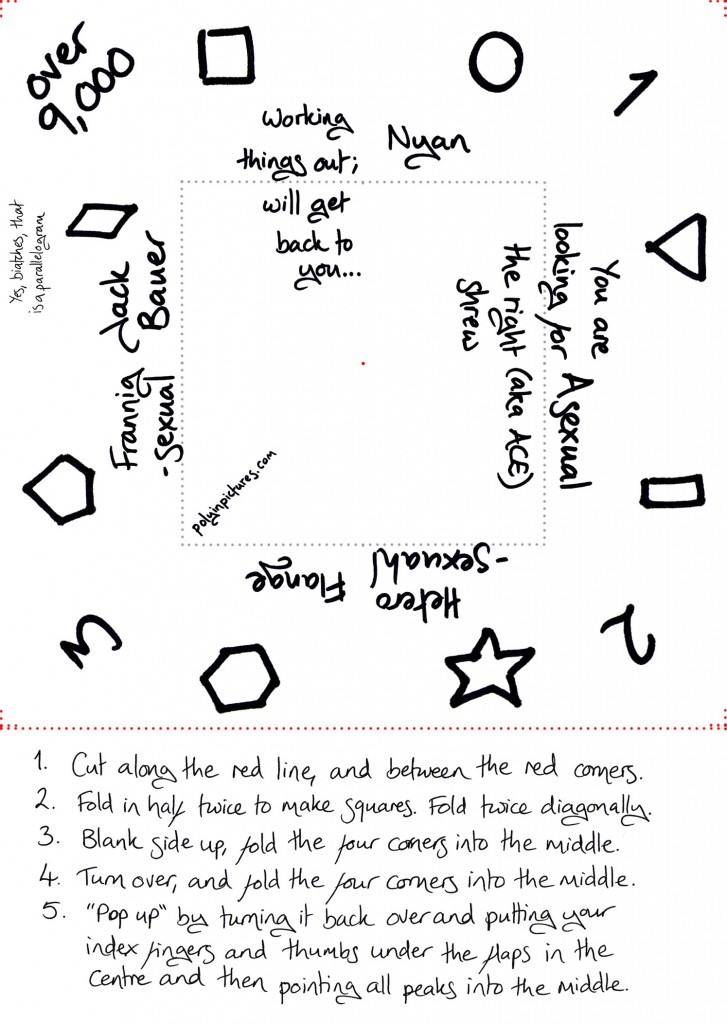 over
9,000
1
Working
things out;
will get
back to
you...
Nyan
Yes, biatches, that
is a parallelogram
Jack
Bauer
Frannig
-Sexual
You are
looking for
the right (aka ACE)
shrew
Asexual
polyinpictures.com
Hetero
-Sexual!
Flange
3
2
1. Cut along the red line, and between the red corners.
2. Fold in half twice to make squares. Fold twice diagonally.
3. Blank side up, fold the four corners into the middle.
4. Turn over, and fold the four corners into the middle.
5. "Pop up" by turning it back over and putting your
index fingers and thumbs under the flaps in the
centre and then pointing all peaks into the middle.